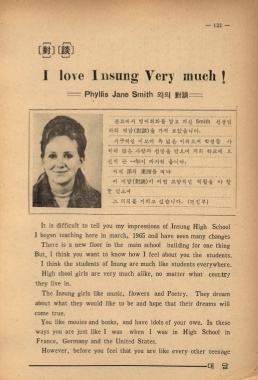 — 122 —
【對】【談】
I love Insung Very much !
Phyllis Jane Smith 와의 對談
본교에서 영어회화를 맡고 계신 Smith 선생님
과의 대담(對談)을 가져 보았읍니다.
It is difficult to tell you my impressions of Insung High School
I began teaching here in march, 1965 and have seen many changes
There is a new floor in the main school building for one thing
But, I think you want to know how I feel about you the students.
I think the students of Insung are much like students everywhere.
High shool girls are very much alike, no matter what country
they live in.
The Insung girls like music, flowers and Poetry. They dream
about what they would like to be and hope that their dreams will
come true.
You like mouies and books, and have idols of your own. In these
ways you are just like I was when I was in High School in
France, Germany and the United States.
However, before you feel that you are like every other teenage
대 담